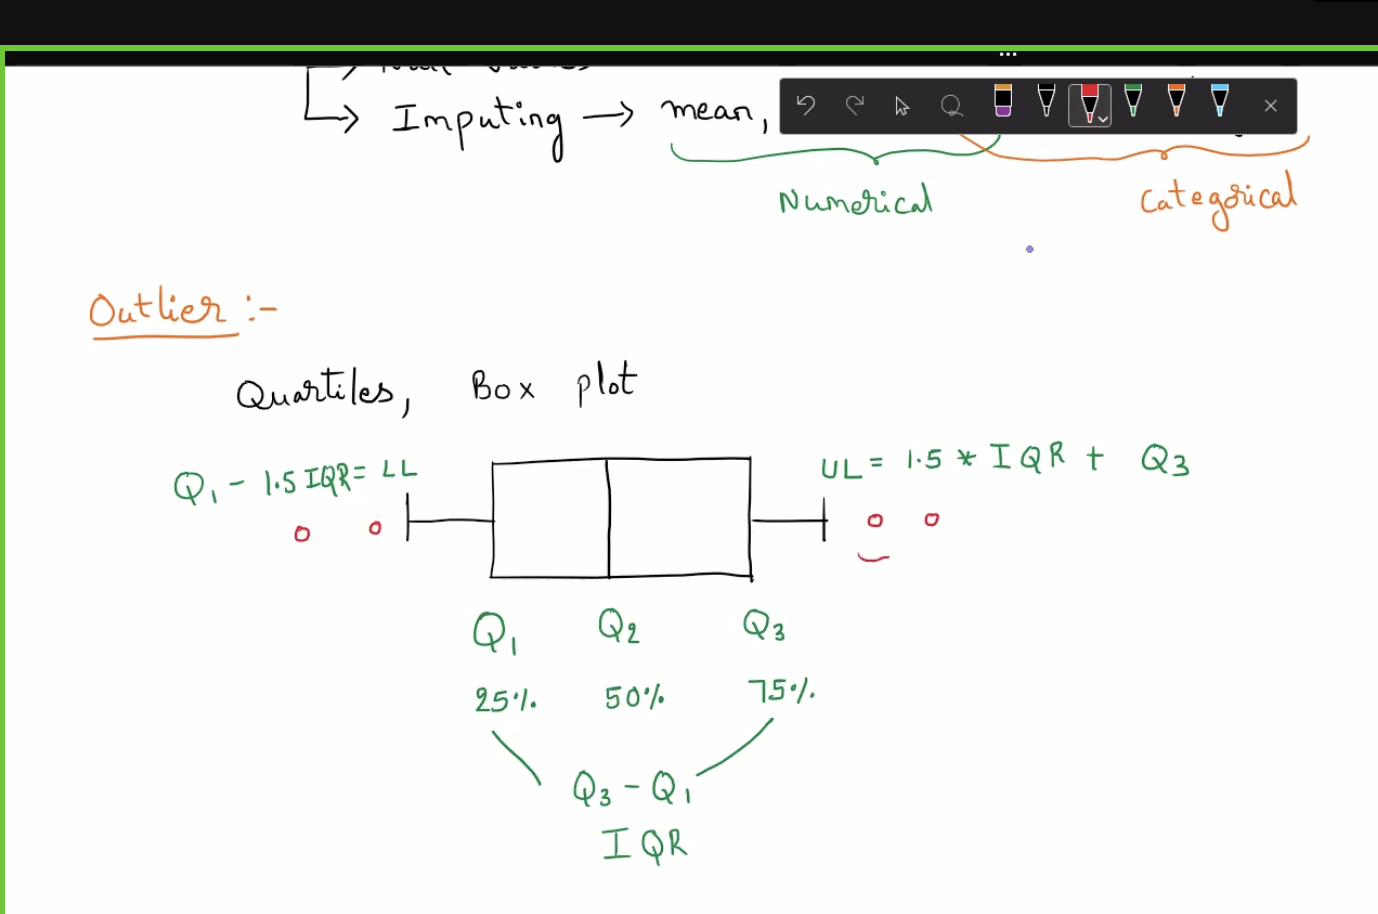 Imputing → mean,
Numerical
Categorical
Outlier :-
Quartiles, Box plot
Q₁ - 1.5 IQR = LL
UL = 1.5 * IQR + Q₃
Q₁ Q₂ Q₃
25% 50% 75%
Q₃ - Q₁
IQR